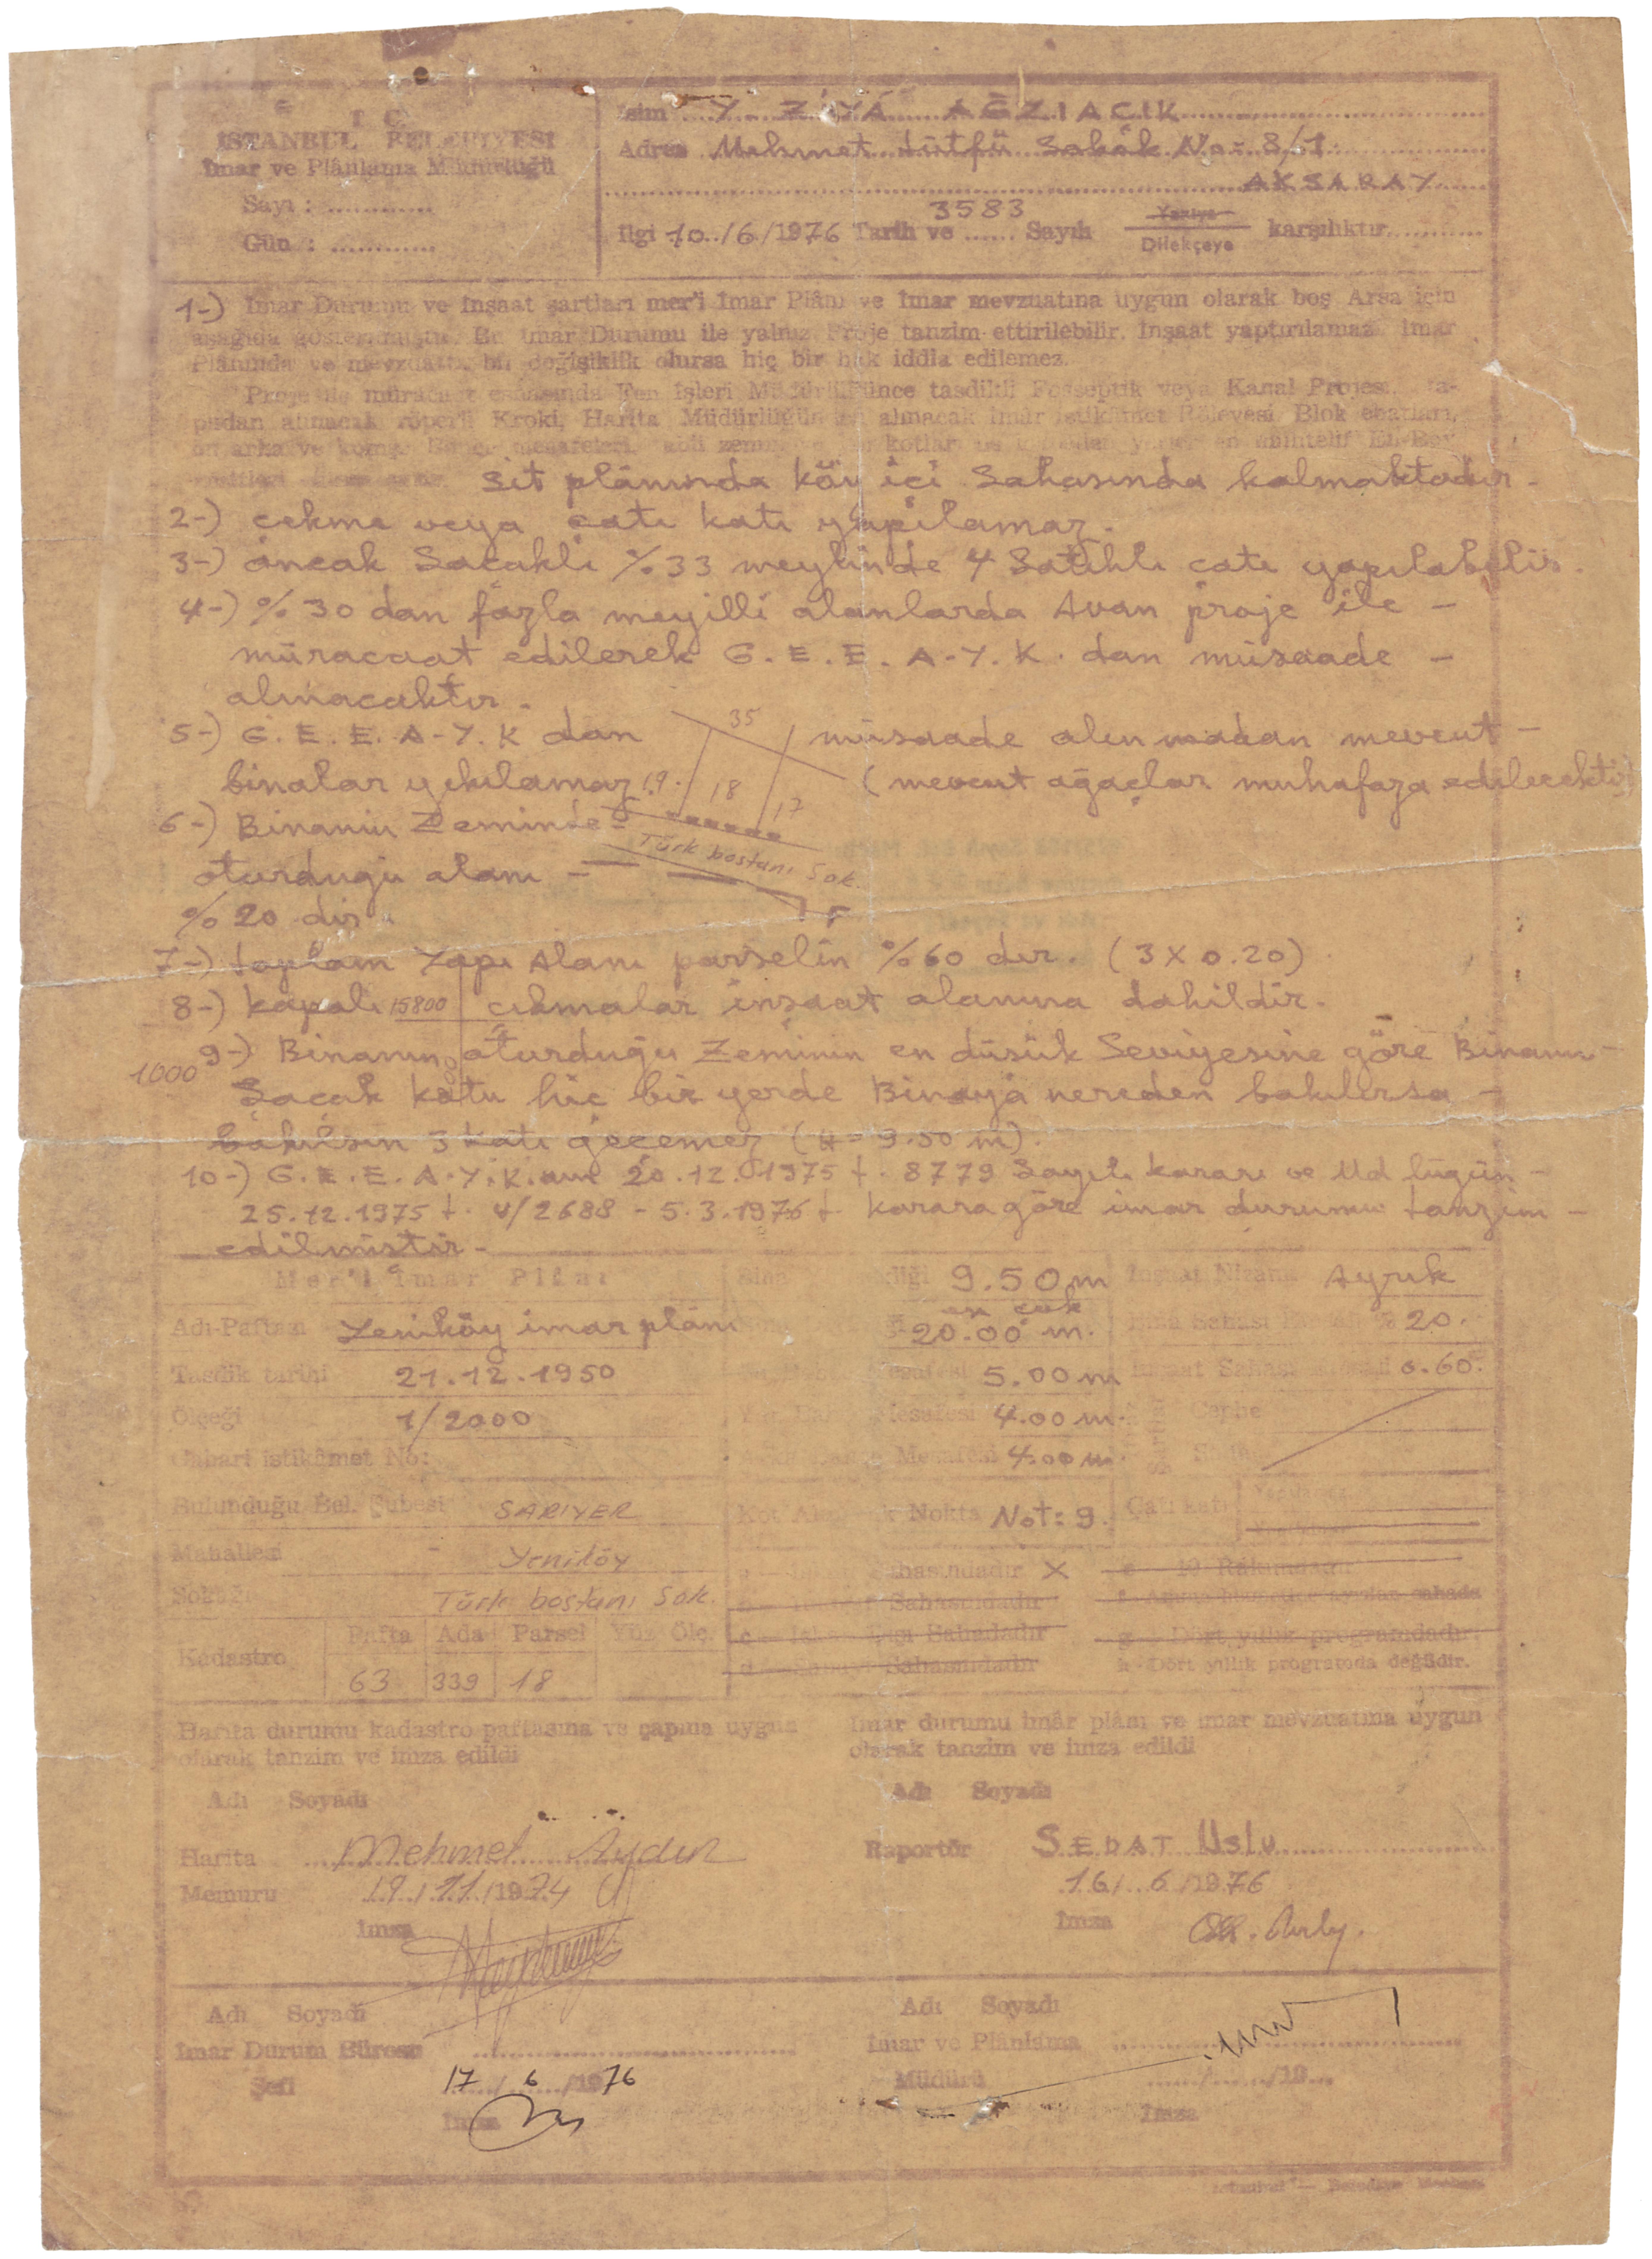 T. C.
İSTANBUL BELEDİYESİ
İmar ve Plânlama Müdürlüğü
Sayı : ............
Gün : ............
İsim Y. ZİYA AĞZIAÇIK
Adres Mehmet Lütfü Sokak No = 8/1
AKSARAY
3583
İlgi 10../6/1976 Tarih ve ...... Sayılı Yazıya Dilekçeye karşılıktır...........
1-) İmar Durumu ve İnşaat şartları mer'i İmar Plânı ve İmar mevzuatına uygun olarak boş Arsa için
aşağıda gösterilmiştir. Bu İmar Durumu ile yalnız Proje tanzim ettirilebilir. İnşaat yaptırılamaz. İmar
Plânında ve mevzuatta bir değişiklik olursa hiç bir hak iddia edilemez.
Proje ile müracaat esnasında Fen İşleri Müdürlüğünce tasdikli Fosseptik veya Kanal Projesi, ta-
pudan alınacak röperli Kroki, Harita Müdürlüğünden alınacak İmâr istikâmet Rölevesi Blok ebatları,
ön arka ve komşu Bahçe mesafeleri, kotlar muhtelif En-Boy
sit plânında köy içi sahasında kalmaktadır -
2-) çekme veya çatı katı yapılamaz.
3-) ancak Saçaklı %33 meylinde 4 Satıhlı çatı yapılabilir.
4-) %30 dan fazla meyilli alanlarda Avan proje ile -
müracaat edilerek G.E.E.A.Y.K. dan müsaade -
alınacaktır.
5-) G.E.E.A.Y.K dan müsaade alınmadan mevcut -
binalar yıkılamaz (mevcut ağaçlar muhafaza edilecektir)
35
19. 18 17
6-) Binanın Zeminde -
Türk bostanı Sok.
oturduğu alanı -
%20 dir.
7-) toplam Yapı Alanı parselin %60 dır. (3 X 0.20)
8-) kapalı çıkmalar inşaat alanına dahildir.
15800
9-) Binanın oturduğu Zeminin en düşük Seviyesine göre Binanın -
1000
Saçak kotu hiç bir yerde Binaya nereden bakılırsa -
bakılsın 3 katı geçemez (H = 9.50 m).
10-) G.E.E.A.Y.K.nun 20.12.1975 t. 8779 Sayılı kararı ve Md lüğün -
25.12.1975 t. v/2688 - 5.3.1976 t. karara göre imar durumu tanzim -
edilmiştir -
Mer'i İmar Plânı
Adı-Paftası Yeniköy imar plânı
Tasdik tarihi 21.12.1950
Ölçeği 1/2000
Gabari istikâmet No:
Bulunduğu Bel. Şubesi SARIYER
Mahallesi Yeniköy
Sokağı Türk bostanı Sok.
Kadastro Pafta Ada Parsel Yüz Ölç.
63 339 18
Bina 9.50 m
en çok
20.00 m.
Mesafesi 5.00 m
Mesafesi 4.00 m.
Mesafesi 4.00 m.
Nokta Not: 9.
İnşaat Nizamı Ayrık
Bina Sahası % 20.
İnşaat Sahası 0.60.
Cephe
Çatı katı
Sahasındadır X
Sahasındadır
c - İskân Dışı Sahadadır
d - Sanayi Sahasındadır
g - Dört yıllık programdadır.
h - Dört yıllık programda değildir.
Harita durumu kadastro paftasına ve çapına uygun
olarak tanzim ve imza edildi
Adı Soyadı
Harita Mehmet Aydın
Memuru 19./11./1974
İmza
İmar durumu imâr plânı ve imar mevzuatına uygun
olarak tanzim ve imza edildi
Adı Soyadı
Raportör SEDAT Uslu
16/..6/1976
İmza
Adı Soyadı
İmar Durum Bürosu
Şefi 17/6/1976
İmza
Adı Soyadı
İmar ve Plânlama
Müdürü ....../....../19...
İmza